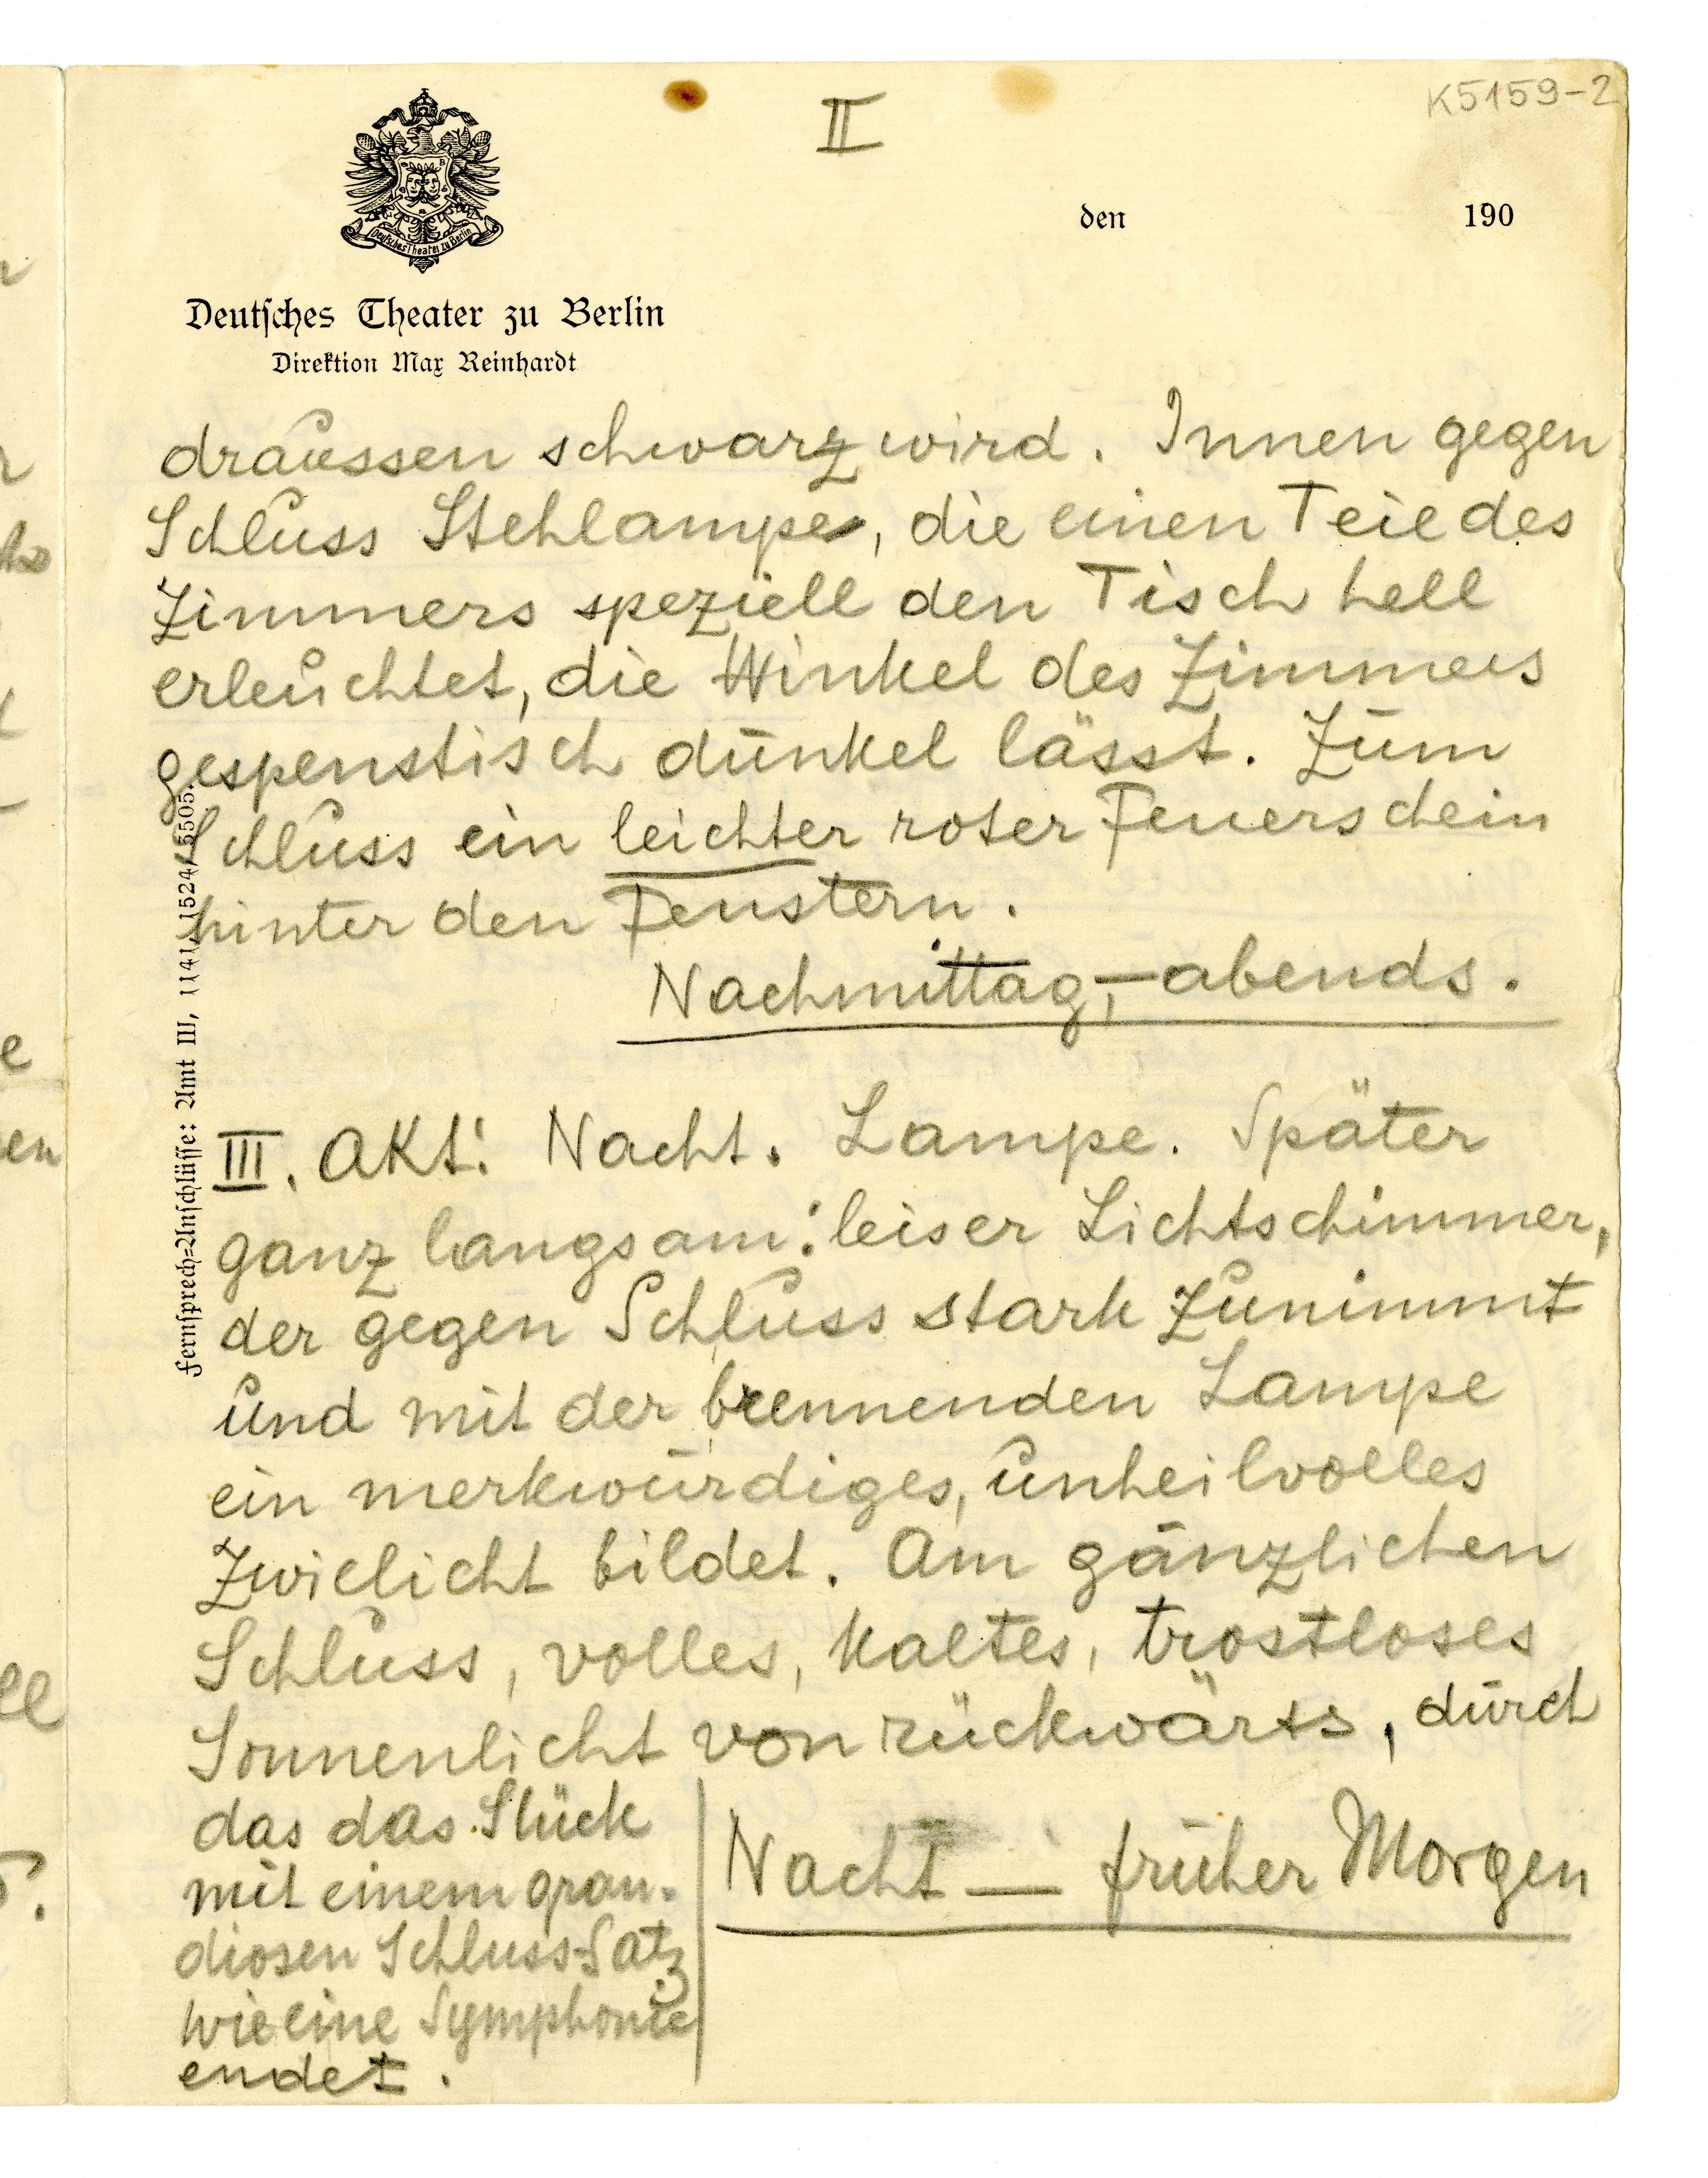 II
K5159-2
Deutsches Theater zu Berlin
den 190
Deutsches Theater zu Berlin
Direktion Max Reinhardt
draussen schwarz wird. Innen gegen
Schluss Stehlampe, die einen Teil des
Zimmers speziell den Tisch hell
erleuchtet, die Winkel des Zimmers
gespenstisch dunkel lässt. Zum
Schluss ein leichter roter Feuerschein
hinter den Fenstern.
Nachmittag,-abends.
III. Akt: Nacht. Lampe. Später
ganz langsam: leiser Lichtschimmer,
der gegen Schluss stark zunimmt
und mit der brennenden Lampe
ein merkwürdiges, unheilvolles
Zwielicht bildet. Am gänzlichen
Schluss, volles, kaltes, trostloses
Sonnenlicht von rückwärts, durch
das das Stück
mit einem gran-
diosen Schluss-Satz
wie eine Symphonie
endet.
Nacht — früher Morgen
Fernsprech-Anschlüsse: Amt III, 1141, 1524, 5505.